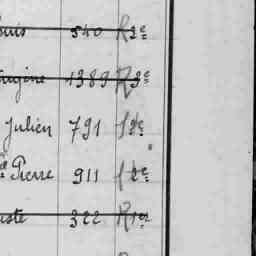 uis 540 R 2e
Eugène 1389 R 3e
Julien 791 f 2e
d Pierre 911 f 2e
uste 322 R 1er